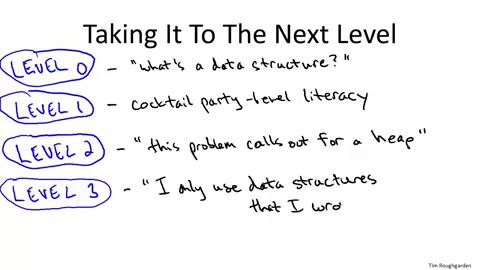 Taking It To The Next Level
LEVEL 0 - "what's a data structure?"
LEVEL 1 - cocktail party-level literacy
LEVEL 2 - "this problem calls out for a heap"
LEVEL 3 - "I only use data structures
that I wro
Tim Roughgarden